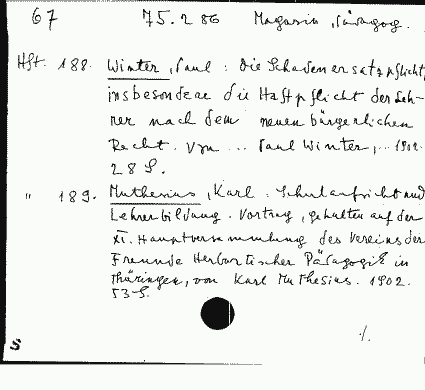 67 75.2 86 Magazin, Pädagog.
Hft. 188. Winter, Paul: Die Schadenersatzpflicht,
insbesondere die Haftpflicht der Leh-
rer nach dem neuen bürgerlichen
Recht. Von ... Paul Winter, .. 1902.
28 S.
" 189. Muthesius, Karl: Schulaufsicht und
Lehrerbildung. Vortrag, gehalten auf der
XI. Hauptversammlung des Vereins der
Freunde Herbartischer Pädagogik in
Thüringen, von Karl Muthesius. 1902.
53 S.
./.
S